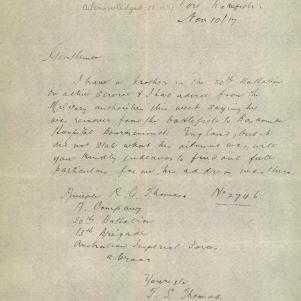 Acknowledged
Nov 10/17
Gentlemen
I have a brother in the 50th Battalion
on active service & I had advice from the
Military authorities this week saying he
was removed from the battlefields to
Hospital Bournemouth England, but it
did not state what his ailment was, will
you kindly endeavor to find out full
particulars for me, his address was thus
Private R. G. Thomas No 2746
A. Company
50th Battalion
13th Brigade
Australian Imperial Force
Yours etc
T. S. Thomas